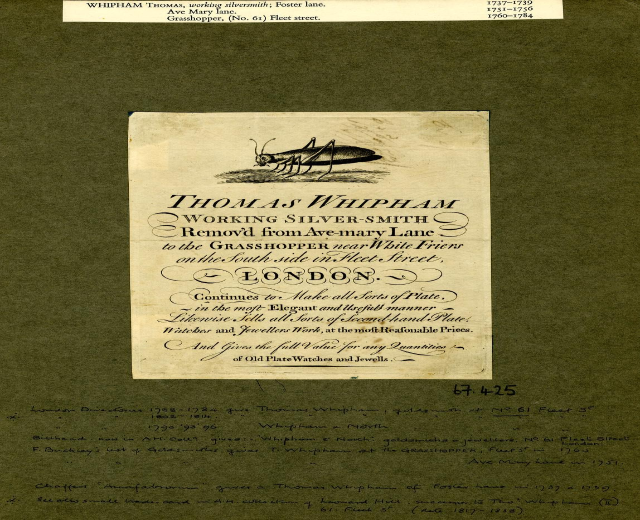 WHIPHAM THOMAS, working silversmith; Foster lane. 1737–1739
Ave Mary lane. 1751–1756
Grasshopper, (No. 61) Fleet street. 1760–1784
THOMAS WHIPHAM
WORKING SILVER-SMITH
Remov'd from Ave-mary Lane
to the GRASSHOPPER near White Friers
on the South side in Fleet Street,
LONDON.
Continues to Make all Sorts of Plate,
in the most Elegant and Usefull manner
Likewise Sells all Sorts of Second hand Plate,
Watches and Jewellers Work, at the most Reasonable Prices.
And Gives the full Value for any Quantities
of Old Plate Watches and Jewells.
67.425
London Directories 1768-1784 give Thomas Whipham, goldsmith at No 61 Fleet St
1790 '93 '96 Whipham & North
Whipham & North goldsmiths & jewellers No 61 Fleet Street
London
list of Goldsmiths gives T. Whipham at the GRASSHOPPER, Fleet St in 1760
Ave Mary Lane in 1751
Chaffers gives a Thomas Whipham of Foster Lane in 1737 & 1739
61 Fleet St